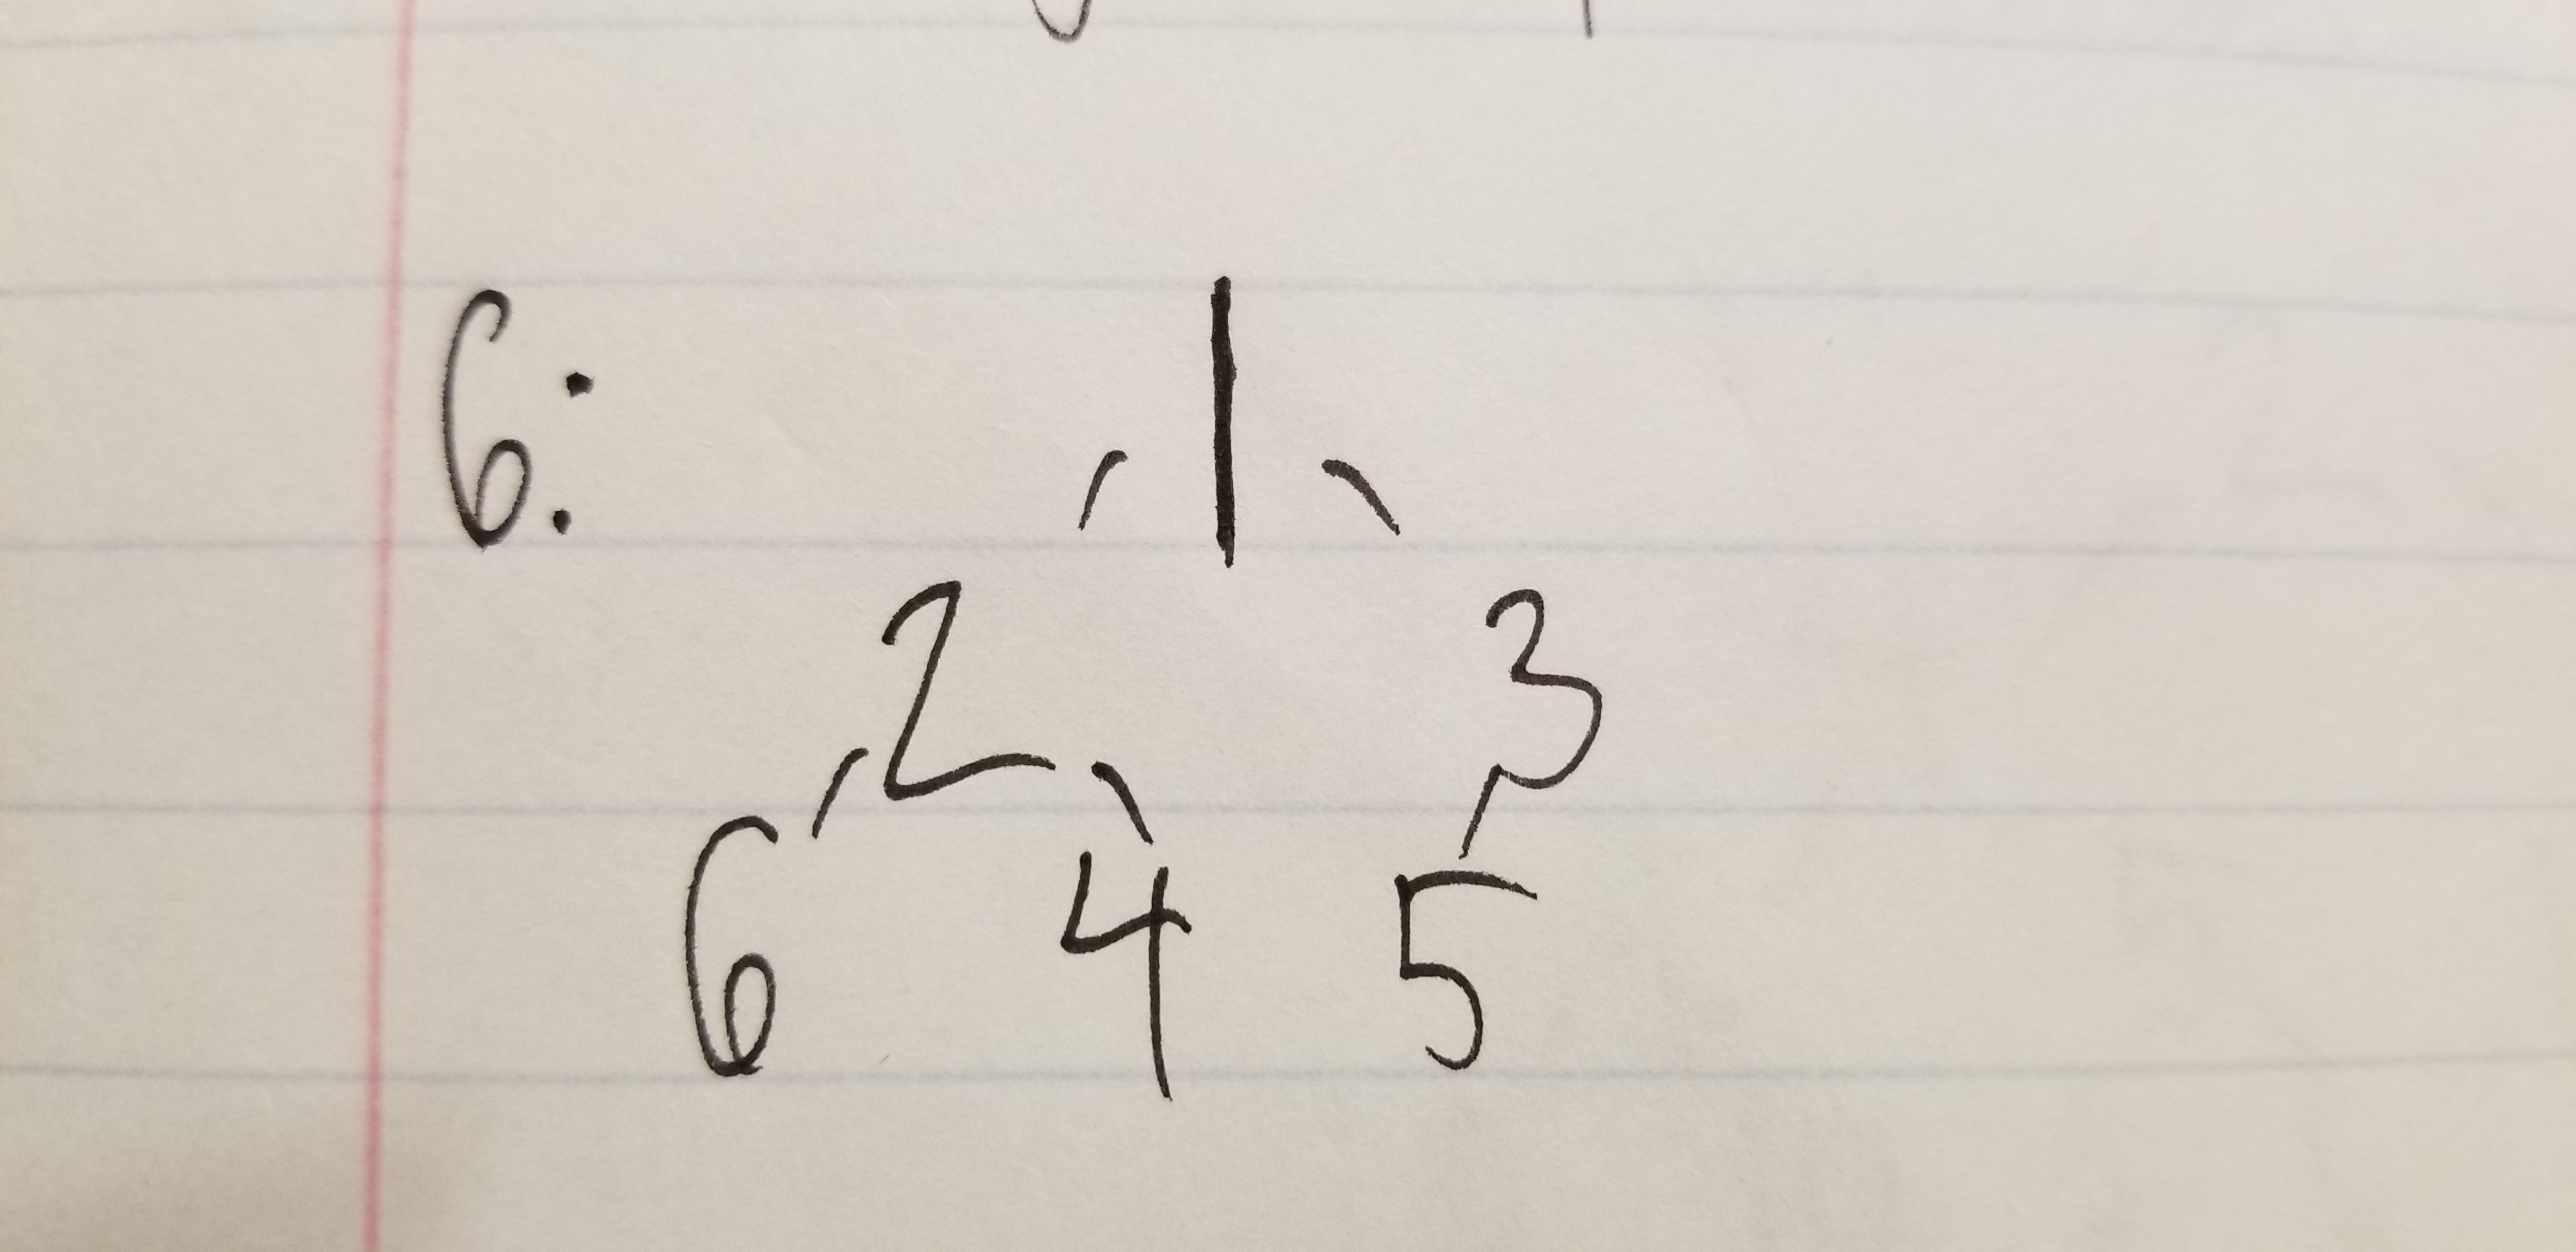 6:
1
2 3
6 4 5